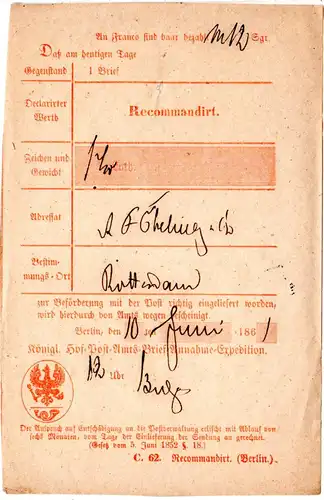 An Franco sind baar bezahlt 12 Sgr.
Daß am heutigen Tage
Gegenstand 1 Brief
Declarirter Werth Recommandirt.
Zeichen und Gewicht
Adressat
Bestimmungs-Ort Rotterdam
zur Beförderung mit der Post richtig eingeliefert worden,
wird hierdurch von Amts wegen bescheinigt.
Berlin, den 10 ten Juni 1861
Königl. Hof-Post-Amts-Brief-Annahme-Expedition.
12 Uhr
Der Anspruch auf Entschädigung an die Postverwaltung erlischt mit Ablauf von
sechs Monaten, vom Tage der Einlieferung der Sendung an gerechnet.
(Gesetz vom 5. Juni 1852 §. 18.)
C. 62. Recommandirt. (Berlin.)